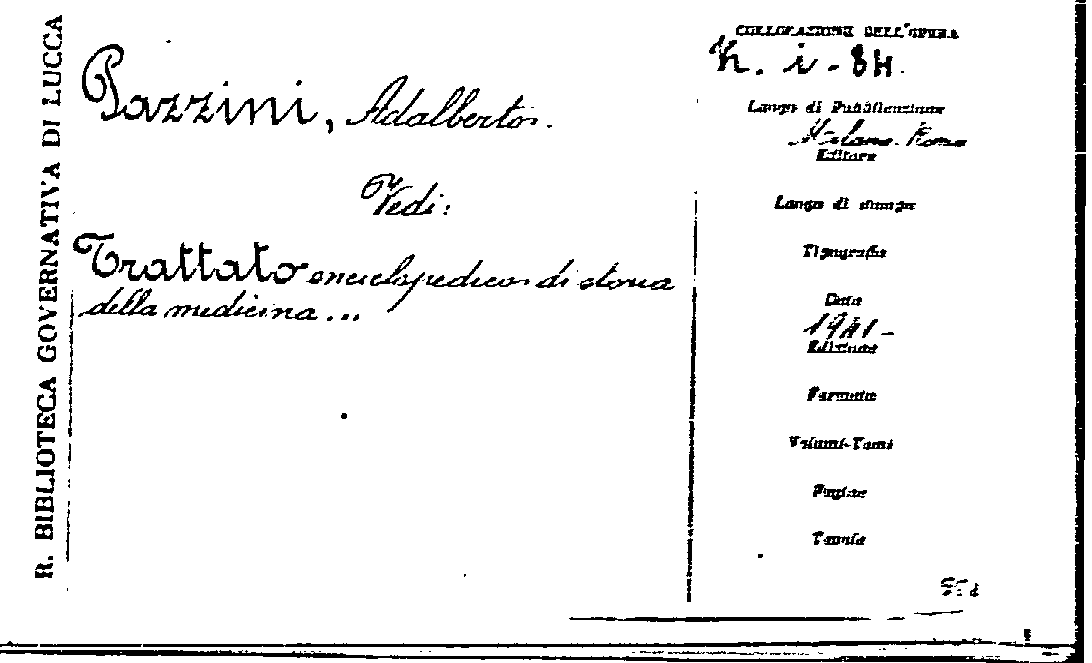 R. BIBLIOTECA GOVERNATIVA DI LUCCA
Pazzini, Adalberto.
Vedi:
Trattato enciclopedico di storia
della medicina...
COLLOCAZIONE DELL'OPERA
i - 84.
Luogo di Pubblicazione
Milano. Roma
Editore
Luogo di stampa
Tipografia
Data
1941 -
Edizione
Formato
Volumi-Tomi
Pagine
Tavole